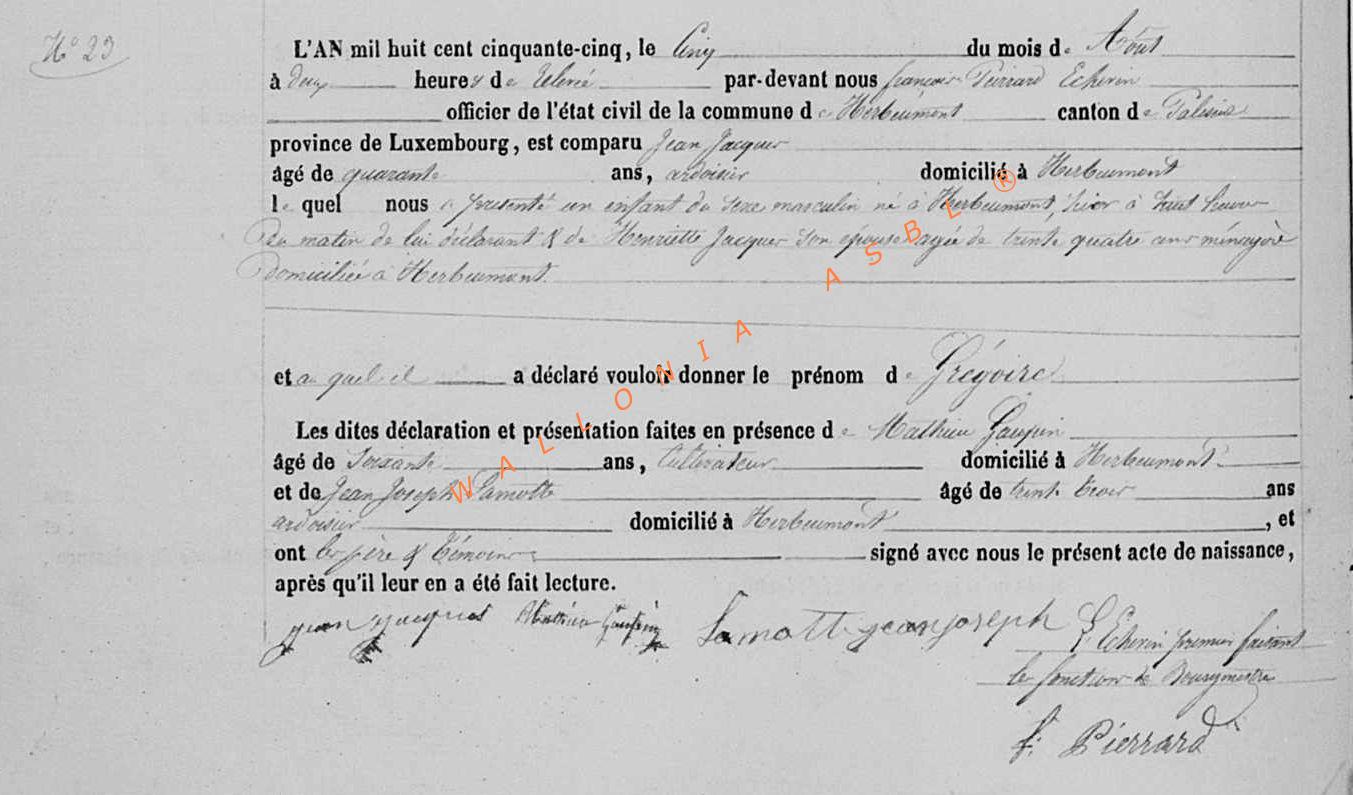 N° 23
L'AN mil huit cent cinquante-cinq, le Cinq du mois de Aôut
à deux heures de relevée par-devant nous françois Pierrard Echevin
officier de l'état civil de la commune de Herbeumont canton de Paliseul
province de Luxembourg, est comparu Jean Jacques
âgé de quarante ans, ardoisier domicilié à Herbeumont
le quel nous a présenté un enfant du sexe masculin né à Herbeumont, hier à huit heures
du matin de lui déclarant & de Henriette Jacques son epouse agée de trente quatre ans ménagère
domiciliée à Herbeumont.
et au quel il a déclaré vouloir donner le prénom de Grégoire
Les dites déclaration et présentation faites en présence de Mathieu Gaupin
âgé de Soixante ans, Cultivateur domicilié à Herbeumont
et de Jean Joseph Lamotte âgé de trente trois ans
ardoisier domicilié à Herbeumont, et
ont les père & témoins signé avec nous le présent acte de naissance,
après qu'il leur en a été fait lecture.
jean jacques Mathieu Gaupin Lamotte jean joseph L'Echevin premier faisant
les fonctions de Bourgmestre
f. Pierrard
WALLONIA ASBL ®